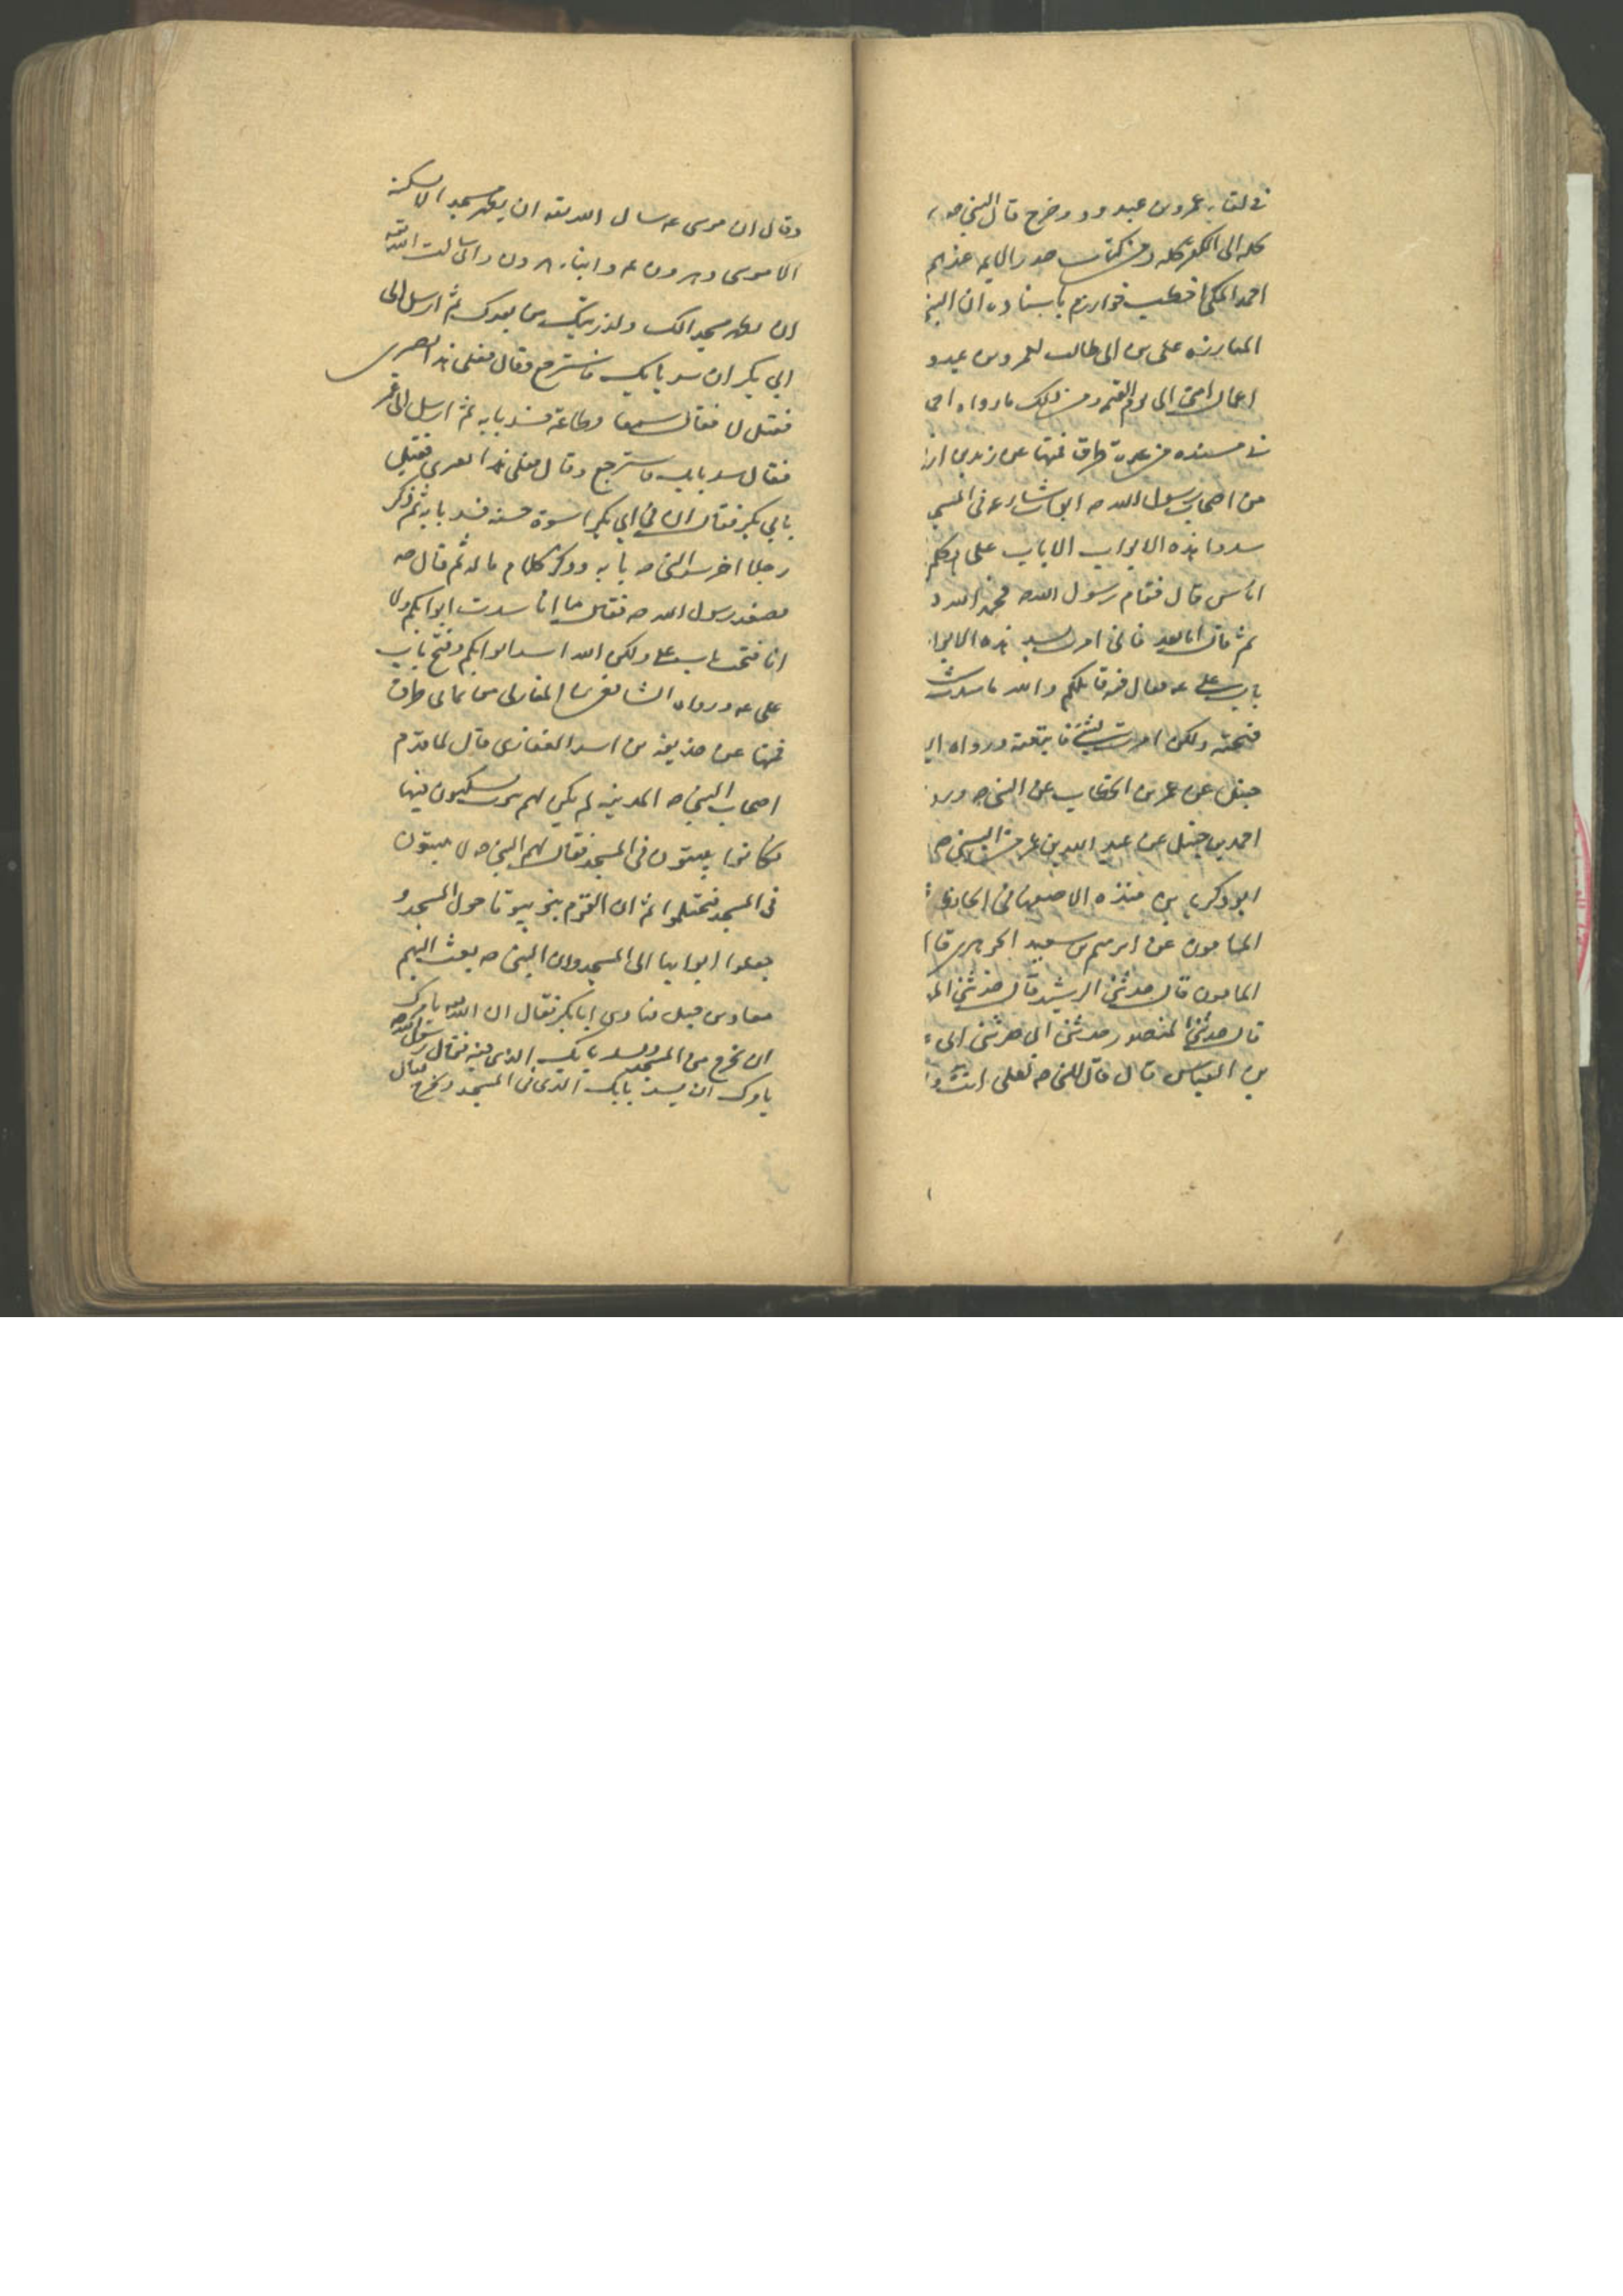 في لقاء عمرو بن عبد ود وخرج قال النبي صه
كله الى الكفر كله ومن كتاب صدر الايمه عندهم
احمد المكي اخطب خوارزم باسناده ان النبي
المبارزه على بن ابى طالب لعمرو بن عبدو
اعمال امتى الى يوم القيمه ومن ذلك ما رواه احم
في مسنده من عدة طرق فمنها عن زيد بن ارق
من اصحاب رسول الله صه ابواب شارعه فى المسج
سدوا هذه الابواب الا باب على فتكلم
اناس قال فقام رسول الله صه فحمد الله و
ثم قال اما بعد فانى امرت بسد هذه الابوا
باب على عه فقال فيه قائلكم والله ما سددت
فتحته ولكن امرت بشئ فاتبعته ورواه ا
حنبل عن عمر بن الخطاب عن النبي صه ورو
احمد بن حنبل عن عبد الله بن عمر عن النبي صه
ابو زكريا بن منده الاصبهانى فى
المامون عن ابرهيم بن سعيد الجوهرى قا
المامون قال حدثنى الرشيد قال حدثنى الم
قال حدثنى المنصور حدثنى ابى حدثنى ابى
بن العباس قال قال النبي صه لعلى انت وا
وقال ان موسى عه سال الله تعه ان يطهر مسجد الا يسكنه
الا موسى وهرون عه وابناء هرون وانى سالت الله تعه
ان يطهر مسجد الك ولذريتك من بعدك ثم ارسل الى
ابى بكر ان سد بابك فاسترجع وقال فعل هذا بغيرى
فقيل لا فقال سمعا وطاعة فسد بابه ثم ارسل الى عمر
فقال سد بابك فاسترجع وقال فعل هذا بغيرى فقيل
بابى بكر فقال ان فى ابى بكر اسوة حسنه فسد بابه ثم ذكر
رجلا اخر سد النبي صه بابه وذكر كلام ما له ثم قال صه
فصعد رسول الله صه فقال ما انا سددت ابوابكم ولا
انا فتحت باب على ولكن الله سد ابوابكم وفتح باب
على عه ورواه الشافعى ابن المغازلى من ثمانى طرق
فمنها عن حذيفه بن اسيد الغفارى قال لما قدم
اصحاب النبي صه المدينه لم يكن لهم بيوت يسكنون فيها
فكانوا يبيتون فى المسجد فقال لهم النبي صه لا تبيتون
فى المسجد فتحتلموا ثم ان القوم بنوا بيوتا حول المسجد و
جعلوا ابوابها الى المسجد وان النبي صه بعث اليهم
معاذ بن جبل فنادى ابا بكر فقال ان الله يامرك
ان تخرج من المسجد وتسد بابك الذى فيه فقال رسول الله صه
يامرك ان تسد بابك الذى فى المسجد وتخرج فقال